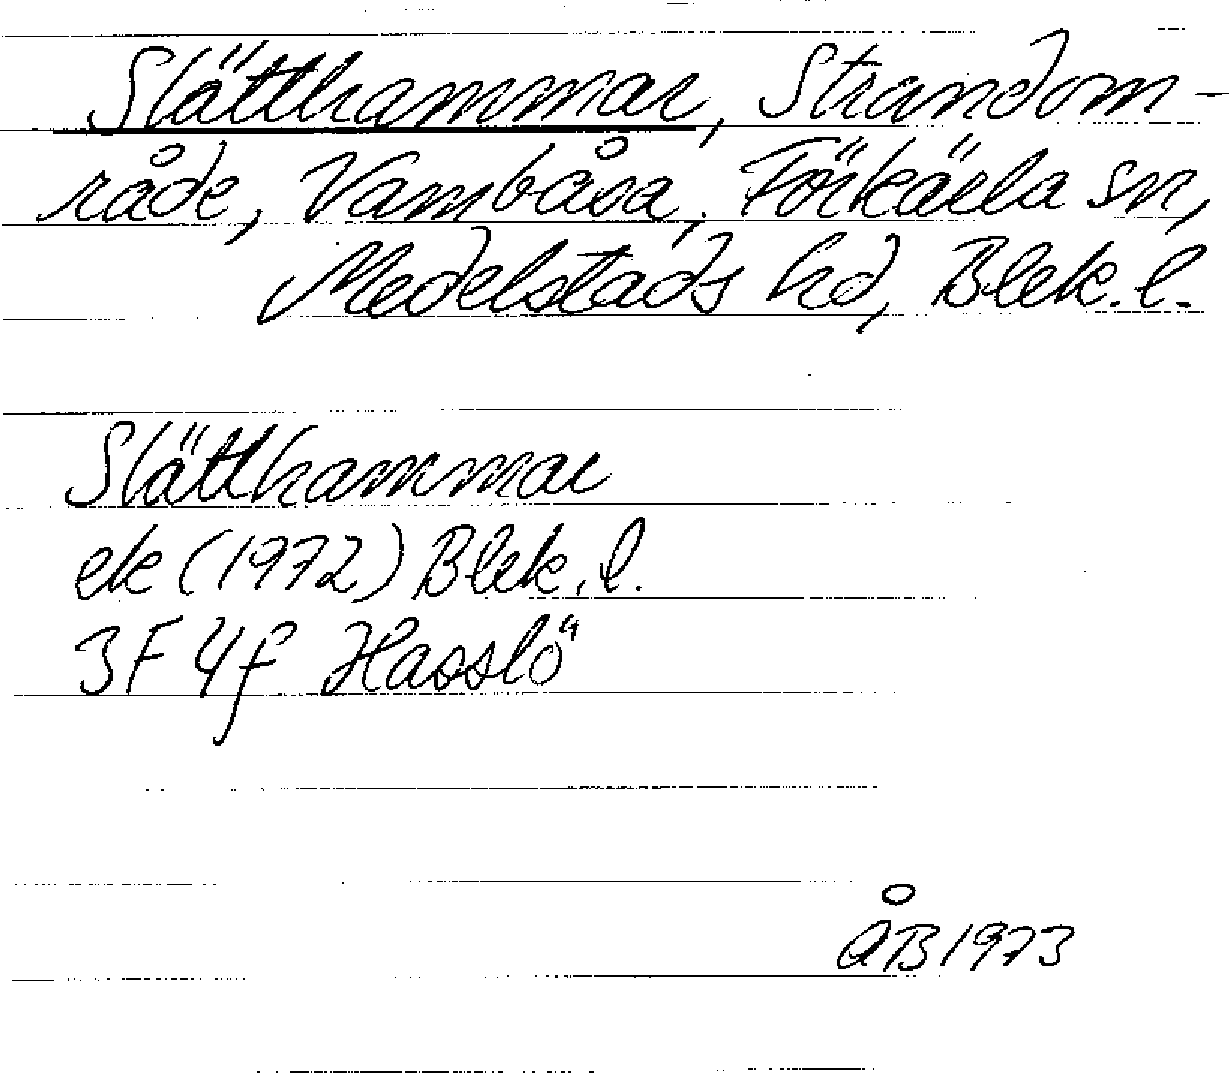 Slätthammar, Strandom-
råde, Vambåsa, Förkärla sn,
Medelstads hd, Blek. l.
Slätthammar
ek (1972) Blek. l.
3F 4f Hasslö
ÅB 1973